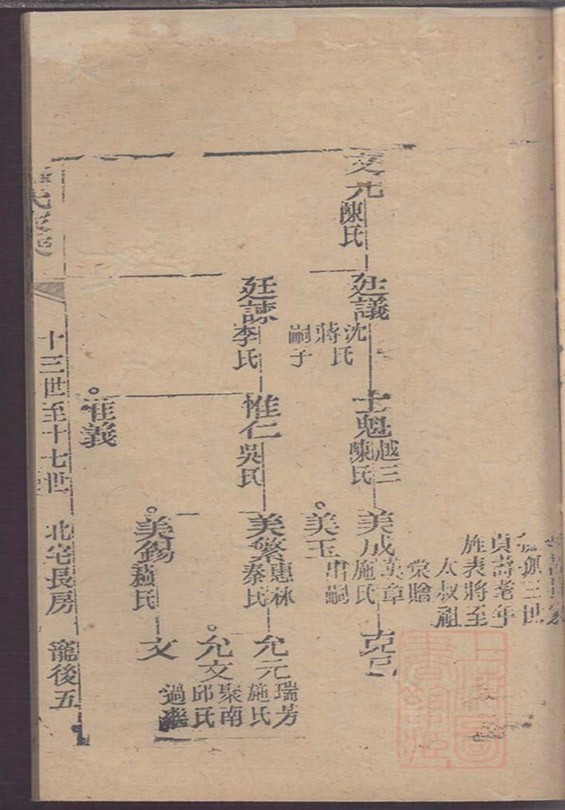 孤三世
貞壽耄年
旌表將至
太叔祖
文元 陳氏
廷議 沈氏 蔣氏 嗣子
士魁 越三 陳氏
美成 英章 施氏
棠贈
克己
美玉 出嗣
廷諫 李氏
惟仁 吳氏
美繁 惠林 秦氏
允元 瑞芳 施氏
允文 聚南 邱氏 過繼
美錫 蘇氏
文
惟義
十三世至十七世 北宅長房 龍後五